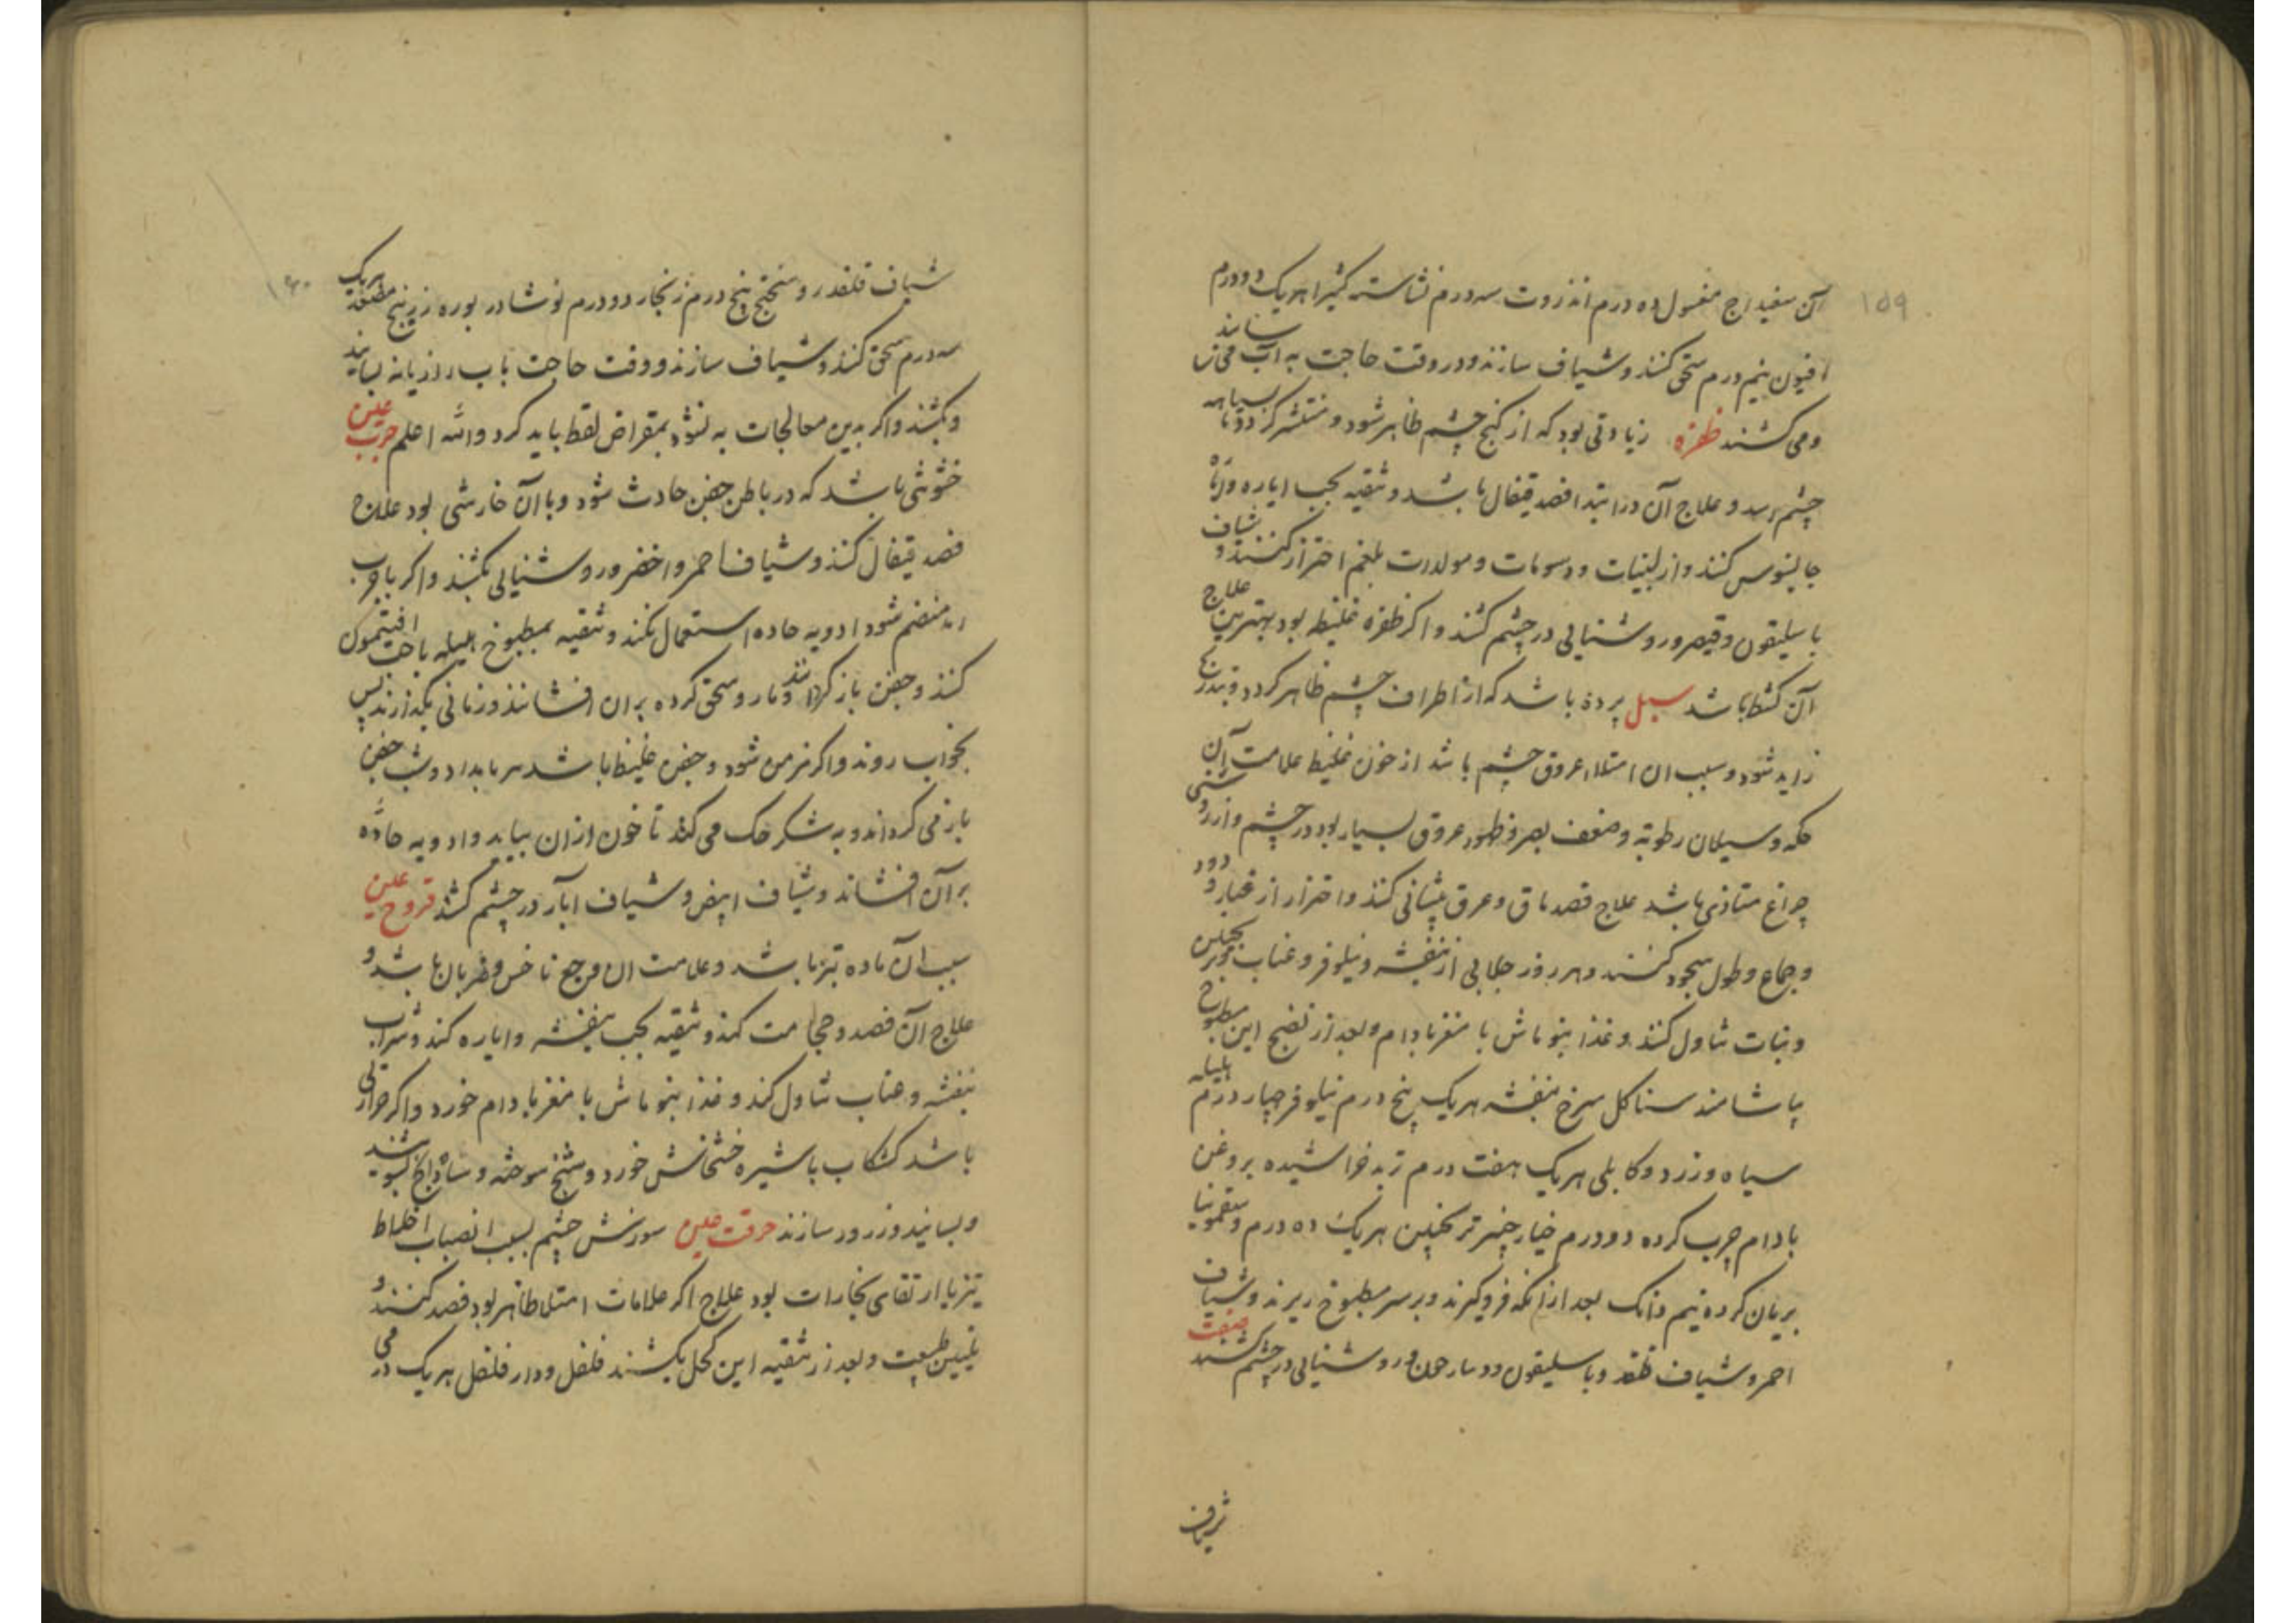 ۱۵۹
آن سفیداج مغسول ده درم انذروت سه درم نشاسته کثیرا هریک دو درم
افیون نیم درم سحق کنند و شیاف سازند و در وقت حاجت به آب می سایند
و می کشند ظفره زیادتی بود که از کنج چشم ظاهر شود و منتشر کردد تا بسیاهه
چشم رسد و علاج آن در ابتدا فصد قیفال باشد و تنقیه بحب ایاره و
جالینوس کنند و از لبنیات و دسومات و مولدات بلغم احتراز کنند و شیاف
باسلیقون و قیصر و روشنایی در چشم کشند و اکر ظفره غلیظ بود بهترین علاج
آن کشط باشد سبل پرده باشد که از اطراف چشم ظاهر کردد و بتدریج
زاید شود و سبب ان امتلاء عروق چشم باشد از خون غلیظ علامت آن
حکه و سیلان رطوبة و ضعف بصر و ظهور عروق بسیار بود در چشم و از روشنی
چراغ متاذی باشد علاج فصد ماق و عرق پیشانی کنند و احتراز از غبار و دود
و جماع و طول سجود کنند و هر روز جلابی از بنفشه و نیلوفر و عناب
و نبات تناول کنند و غذا بنو ماش با مغز بادام و بعد از نضج این مطبوخ
بیاشامند سنا کل سرخ بنفشه هریک پنج درم نیلوفر چهار درم هلیله
سیاه و زرد و کابلی هریک هفت درم تربد خراشیده بروغن
بادام چرب کرده دو درم خیار چنبر ترنجبین هریک ده درم و سقمونیا
بریان کرده نیم دانک بعد از انکه فرو کیرند و بر سر مطبوخ ریزند و شیاف
احمر و شیاف و باسلیقون و روشنایی در چشم کشند صفت
شیاف
شیاف قلقدر و سنجتج پنج درم زنجار دو درم نوشادر بوره زرنیخ هریک
سه درم سحق کنند و شیاف سازند و وقت حاجت باب رازیانه بسایند
و بکشند و اکر بدین معالجات به نشود بمقراض لقط باید کرد والله اعلم جرب عین
خشونتی باشد که در باطن جفن حادث شود و با آن خارشی بود علاج
فصد قیفال کنند و شیاف احمر و اخضر و روشنایی بکشند و اکر با جرب
منضم شود ادویه حاده استعمال نکنند و تنقیه بمطبوخ هلیله یا حب افتیمون
کنند و جفن باز کردانند و مازو سحق کرده بران افشانند و زمانی بکذارند پس
بخواب روند و اکر مزمن شود و جفن غلیظ باشد هر بامداد و شب جفن
باز می کردانند و به شکر حک می کنند تا خون ازان بیاید و ادویه حاده
بر آن افشاند و شیاف ابیض و شیاف ابار در چشم کشند قروح عین
سبب ان ماده تیز باشد و علامت ان وجع ناخس و ضربان باشد و
علاج آن فصد و حجامت کنند و تنقیه بحب بنفشه و ایاره کنند و شراب
بنفشه و عناب تناول کنند و غذا بنو ماش با مغز بادام خورد و اکر حرارتی
باشد کشکاب با شیره خشخاش خورد و شنج سوخته و شادنج بشویند
و بسایند و زرور سازند حرقت عین سوزش چشم بسبب انصباب اخلاط
تیز یا ارتقای بخارات بود علاج اکر علامات امتلا ظاهر بود فصد کنند و
تلیین طبیعت و بعد از تنقیه این کحل بکشند فلفل و دار فلفل هریک درمی